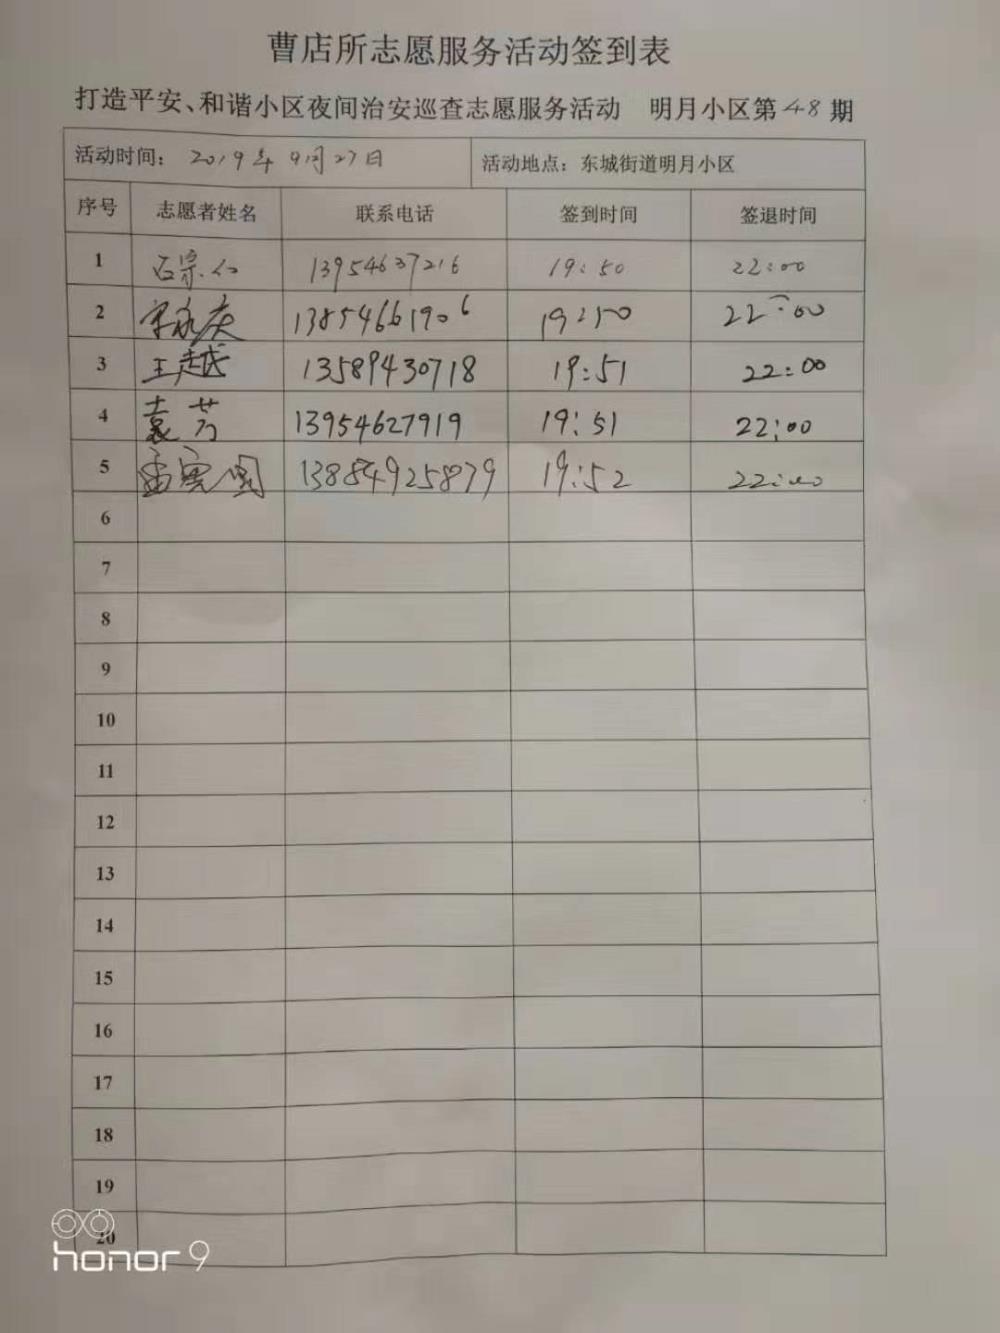 曹店所志愿服务活动签到表
打造平安、和谐小区夜间治安巡查志愿服务活动 明月小区第48期
活动时间：2019年9月27日 活动地点：东城街道明月小区
序号 志愿者姓名 联系电话 签到时间 签退时间
1 石宗仁 13954637216 19:50 22:00
2 宋永庆 13854661906 19:50 22:00
3 王越 13589430718 19:51 22:00
4 袁芳 13954627919 19:51 22:00
5 13884925879 19:52 22:00
6
7
8
9
10
11
12
13
14
15
16
17
18
19
20
honor 9